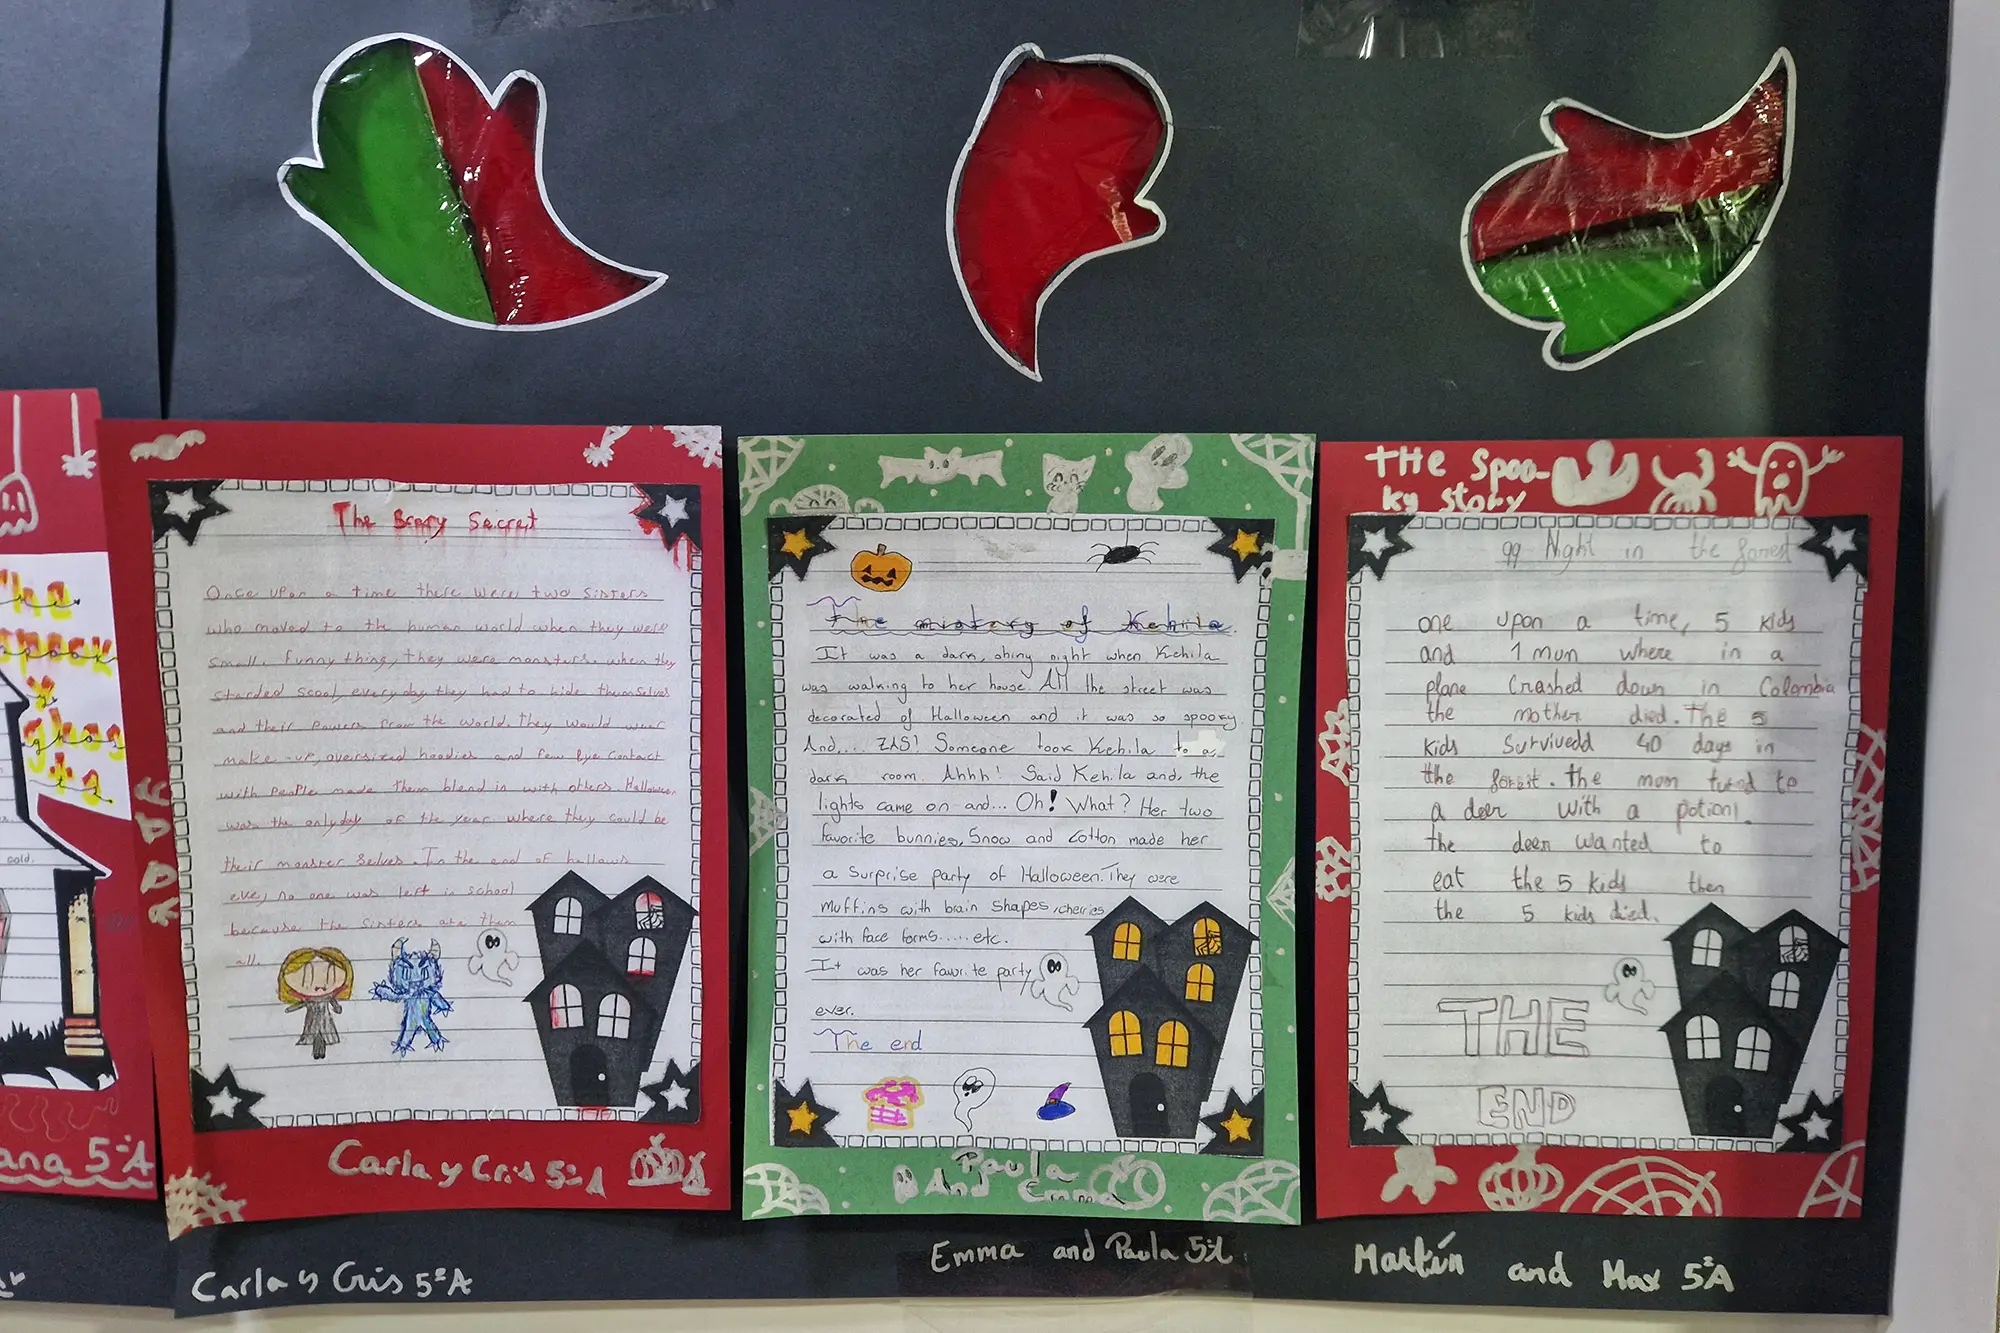 The
spook
y
ghos
ts
cold.
ana 5ºA
The Scary Secret
Once upon a time there were two sisters
who moved to the human world when they were
small. Funny thing, they were monsters. when they
starded scool, everyday they had to hide themselves
and their powers from the world. They would wear
make-up, oversized hoodies and few eye contact
with people made them blend in with others. Halloween
was the only day of the year where they could be
their monster selves. In the end of hallows
eve, no one was left in school
because the sisters ate them
all.
Carla y Cris 5ºA
Carla y Cris 5ºA
The mistery of Kehila.
It was a dark, shiny night when Kehila
was walking to her house. All the street was
decorated of Halloween and it was so spooky.
And.... ZAS! Someone took Kehila to a
dark room. Ahhh! Said Kehila and, the
lights came on and... Oh! What? Her two
favorite bunnies, Snow and Cotton made her
a surprise party of Halloween. They were
muffins with brain shapes, cherries
with face forms.....etc.
It was her favorite party
ever.
The end
Paula
And Emma
Emma and Paula 5ºA
THe Spoo-
ky story
99 Night in the forrest
one upon a time, 5 kids
and 1 mom where in a
plane crashed down in Colombia
the mother died. The 5
kids survivedd 40 days in
the forest. the mom turnd to
a deer with a potion!.
the deer wanted to
eat the 5 kids then
the 5 kids died.
THE
END
Martín and Max 5ºA